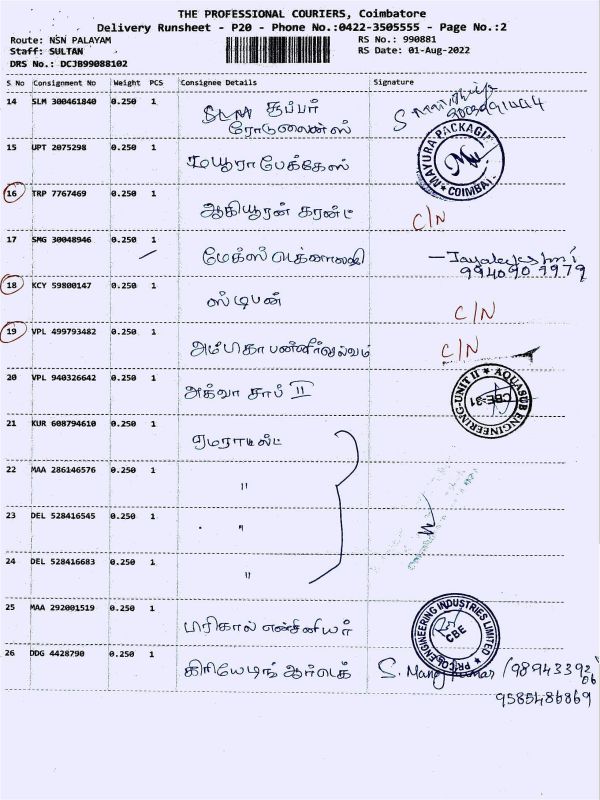 THE PROFESSIONAL COURIERS, Coimbatore
Delivery Runsheet - P20 - Phone No.:0422-3505555 - Page No.:2
Route: NSN PALAYAM RS No.: 990881
Staff: SULTAN RS Date: 01-Aug-2022
DRS No.: DCJB99088102
S No Consignment No Weight PCS Consignee Details Signature
14 SLM 300461840 0.250 1 SLM சூப்பர்
ரோடுலைன்ஸ்
15 UPT 2075298 0.250 1 மயூரா பேக்கேஸ் MAYURA PACKAGIN
COIMBAT
16 TRP 7767469 0.250 1 ஆகியூரன் கரண்ட் C/N
17 SMG 30048946 0.250 1 மேக்ஸ் டெக்னாலஜி
994090 7979
18 KCY 59800147 0.250 1 ஸ்டீபன் C/N
19 VPL 499793482 0.250 1 அம்பிகா பன்னீர்செல்வம் C/N
20 VPL 940326642 0.250 1 அக்வா சாப் II AQUASUB ENGINEERING-UNIT II
CBE-31
21 KUR 608794610 0.250 1 எமரால்ட்
22 MAA 286146576 0.250 1 "
23 DEL 528416545 0.250 1 "
24 DEL 528416683 0.250 1 "
25 MAA 292001519 0.250 1 பரிகால் என்சினியர் PRICOL ENGINEERING INDUSTRIES LIMITED
CBE
26 DDG 4428790 0.250 1 கிரியேடிங் ஆர்டெக் S. Manoj Kumar / 9894339206
9585486869